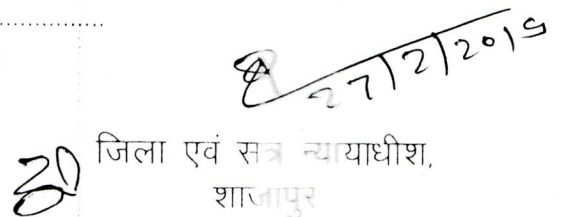 27/2/2015
जिला एवं सत्र न्यायाधीश,
शाजापुर